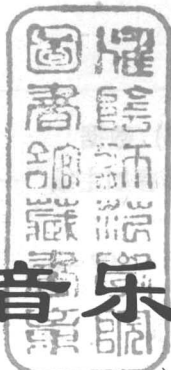 淮陰師范學院
圖書館藏書章
音乐